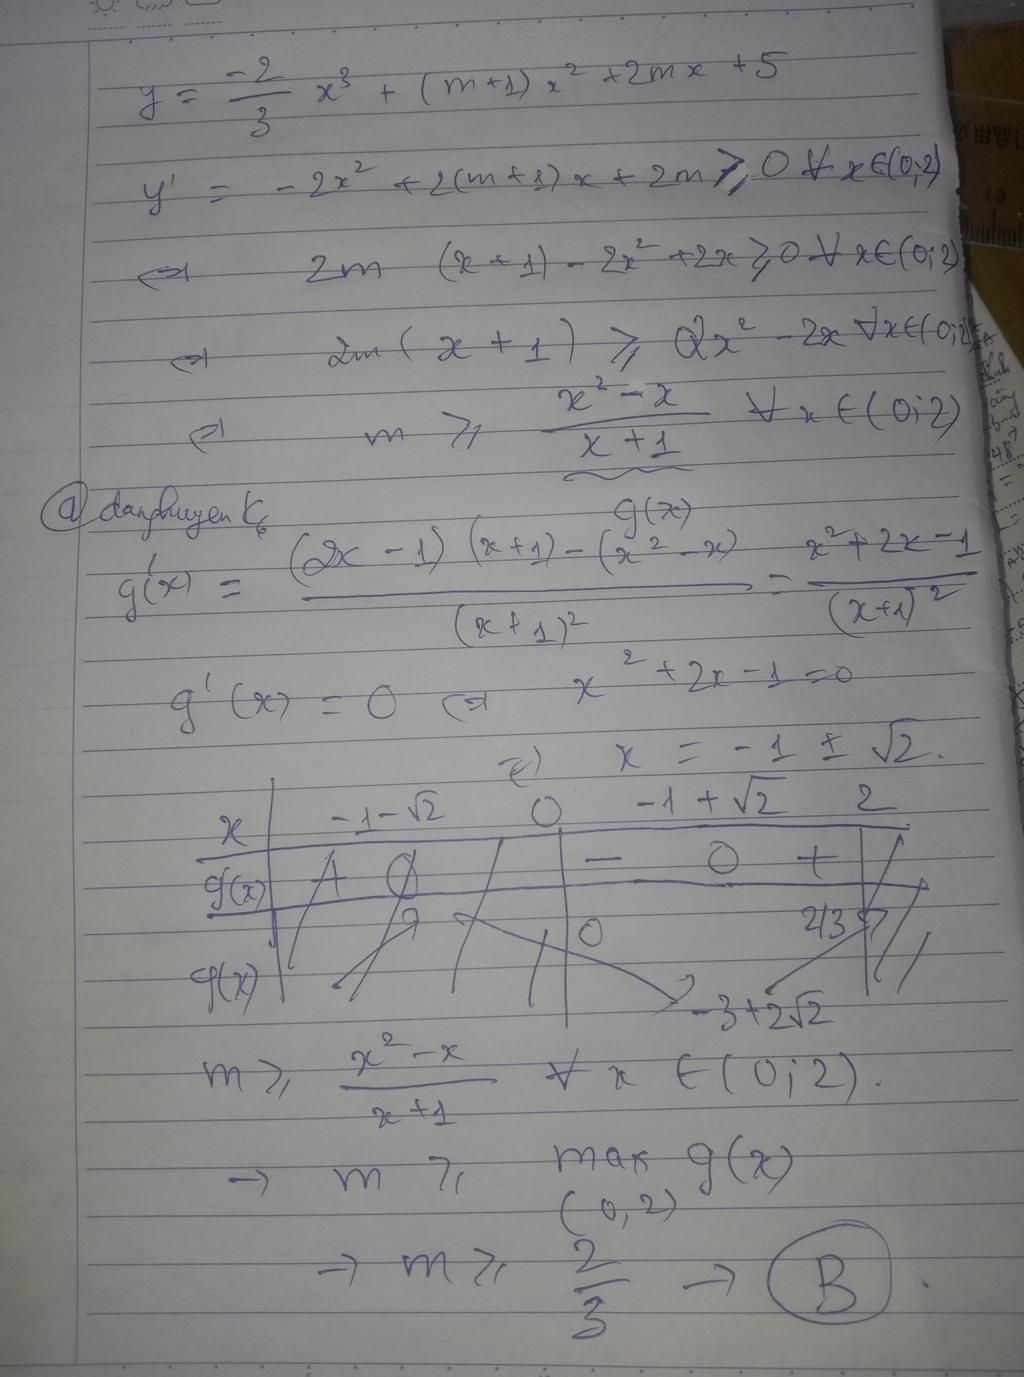 y = -2/3 x³ + (m+1) x² + 2mx + 5
y' = - 2x² + 2(m+1) x + 2m ⩾ 0 ∀ x∈(0;2)
⇔ 2m (x + 1) - 2x² + 2x ⩾ 0 ∀ x∈(0;2)
⇔ 2m (x + 1) ⩾ 2x² - 2x ∀x∈(0;2)
⇔ m ⩾ (x² - x)/(x + 1) ∀ x ∈ (0;2)
g(x)
g'(x) = ((2x - 1) (x+1) - (x² - x))/((x + 1)²) = (x² + 2x - 1)/((x+1)²)
g'(x) = 0 ⇔ x² + 2x - 1 = 0
⇔ x = - 1 ± √2.
x -1-√2 0 -1 + √2 2
g'(x) + 0 - 0 +
g(x) 0 2/3
-3+2√2
m ⩾ (x² - x)/(x + 1) ∀ x ∈ (0;2).
→ m ⩾ max g(x)
(0,2)
→ m ⩾ 2/3 → B .